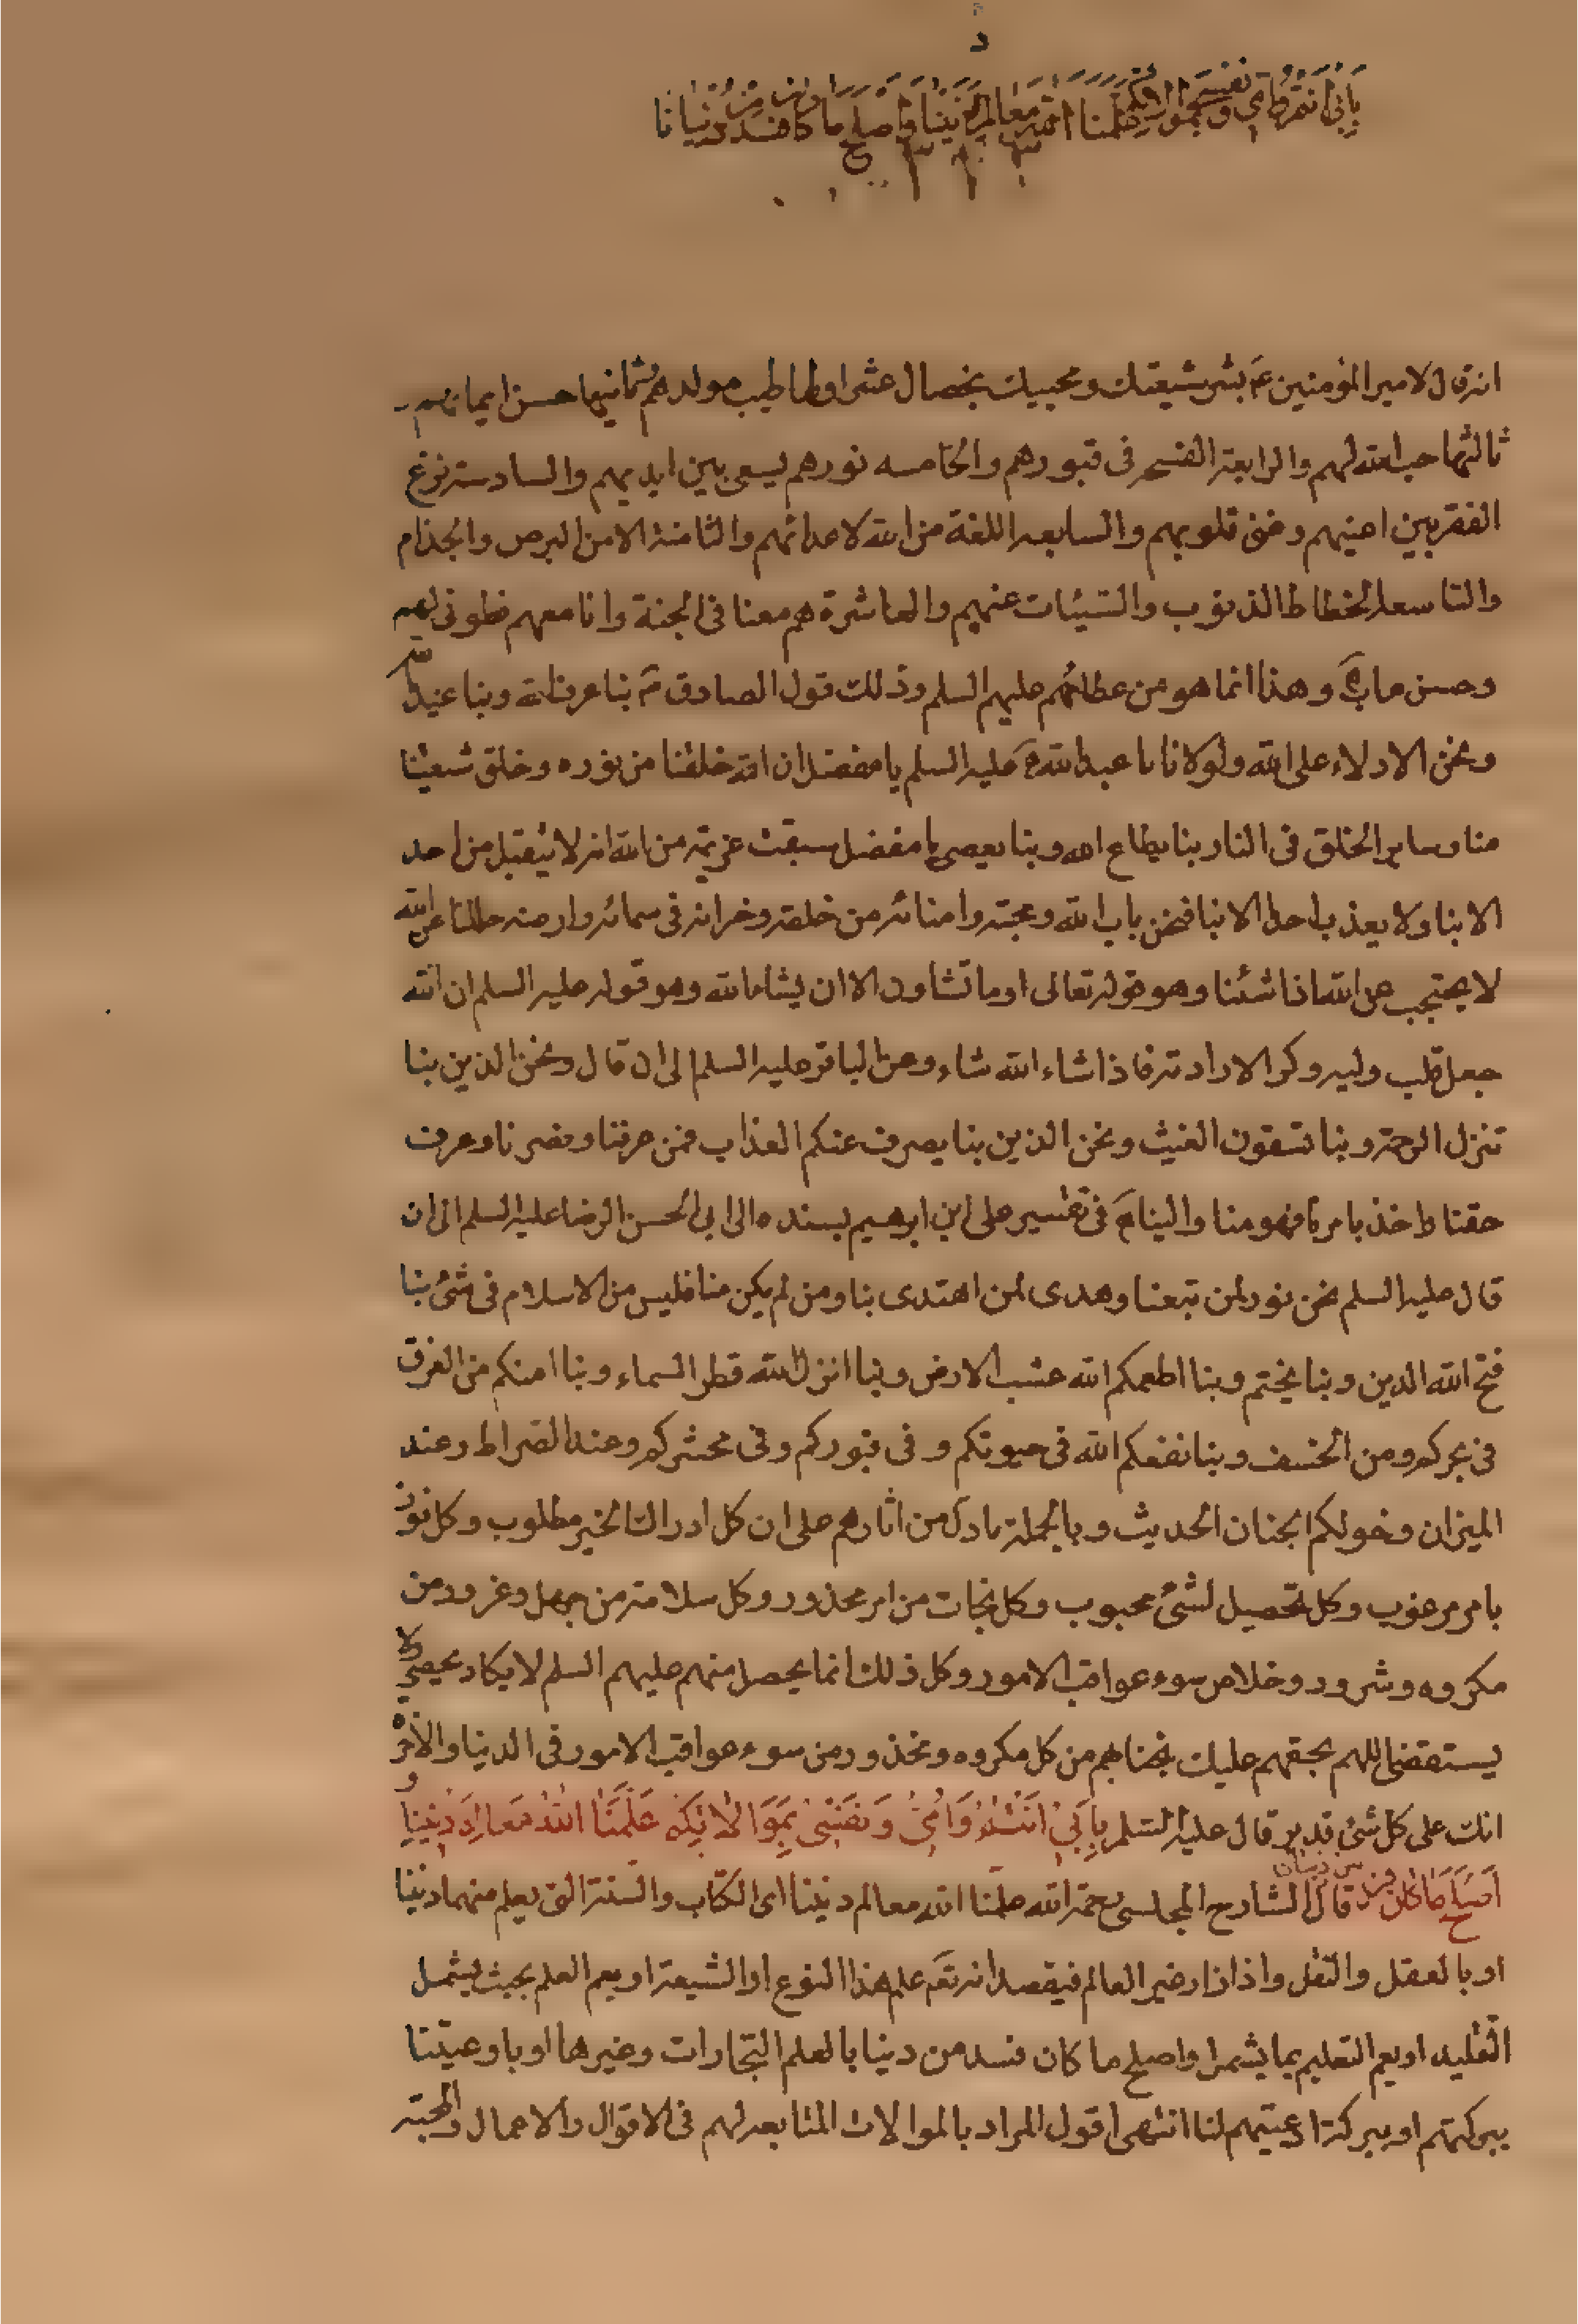 بابی انتم وامی ونفسی بموالاتکم علمنا الله معالم دیننا واصلح ما کان فسد من دنیانا
انه قال لامیر المؤمنین ع بشر شیعتك ومحبیك بخصال عشر اولها طیب مولدهم ثانیها حسن ایمانهم
ثالثها حب الله لهم والرابعة الفسح فی قبورهم والخامسه نورهم یسعی بین ایدیهم والسادسة نزع
الفقر بین اعینهم وغنی قلوبهم والسابعه اللعنة من الله لاعدائهم والثامنة الامن البرص والجذام
والتاسعة انحطاط الذنوب والسیئات عنهم والعاشرة هم معنا فی الجنة وانا معهم فطوبی لهم
وحسن ماب وهذا انما هو من عطائهم علیهم السلم وذلك قول الصادق ع بنا عرف الله وبنا عبد الله
ونحن الادلاء علی الله ولولانا ما عبد الله وع علیه السلم یا مفضل ان الله خلقنا من نوره وخلق شیعتنا
منا وسایر الخلق فی النار بنا یطاع الله وبنا یعصی یا مفضل سبقت عزیمة من الله انه لا یتقبل من احد
الا بنا ولا یعذب احدا الا بنا فنحن باب الله وحجته وامنائه من خلقه وخزانه فی سمائه وارضه حللنا عن الله
لا یحتجب عن الله اذا شئنا وهو قوله تعالی وما تشاون الا ان یشاء الله وهو قوله علیه السلم ان الله
جعل قلب ولیه وکر الارادته فاذا شاء الله شاء وعن الباقر علیه السلم الی ان قال ونحن الذین بنا
تنزل الرحمة وبنا تسقون الغیث ونحن الذین بنا یصرف عنکم العذاب فمن عرفنا ونصرنا وعرف
حقنا واخذ بامرنا فهو منا والینا وفی تفسیر علی ابن ابرهیم بسنده الی ابی الحسن الرضا علیه السلم الی ان
قال علیه السلم نحن نور لمن تبعنا وهدی لمن اهتدی بنا ومن لم یکن منا فلیس من الاسلام فی شئ بنا
فتح الله الدین وبنا یختم وبنا اطعمکم الله عشب الارض وبنا انزل الله قطر السماء وبنا امنکم من الغرق
فی بحرکم ومن الخسف وبنا نفعکم الله فی حیوتکم وفی قبورکم وفی محشرکم وعند الصراط وعند
المیزان ودخولکم الجنان الحدیث وبالجملة ما دل من اثارهم علی ان کل ادراك الخیر مطلوب وکل فوز
بامر مرغوب وکل تحصیل لشئ محبوب وکل نجات من امر محذور وکل سلامة من جهل وغرور من
مکروه وشرور وخلاص سوء عواقب الامور وکل ذلك انما یحصل منهم علیهم السلم لا یکاد یحصی ولا
یستقصی اللهم بحقهم علیك نجنا بهم من کل مکروه ومحذور من سوء عواقب الامور فی الدنیا والاخرة
انك علی کل شئ قدیر قال علیه السلم بِاَبی اَنْتُمْ وَاُمّی وَنَفْسی بِمُوَالاتِکُمْ عَلَّمَنَا اللّٰهُ مَعَالِمَ دینِنا وَ
اَصْلَحَ مَا کَانَ فَسَدَ مِنْ دُنْیَانَا قال الشارح المجلسی رحمة الله علمنا الله معالم دیننا ای الکتاب والسنة التی یعلم منهما دیننا
او بالعقل والنقل واذا زار غیر العالم فیقصد انه تع علم هذا النوع او الشیعة او یعم العلم بحیث یشمل
التقلید او یعم التعلیم بما یشمل واصلح ما کان فسد من دنیا بالعلم التجارات وغیرها او باوعیتنا
ببرکتهم او ببرکة ادعیتهم لنا انتهی اقول المراد بالموالات المتابعه لهم فی الاقوال والاعمال والمحبة